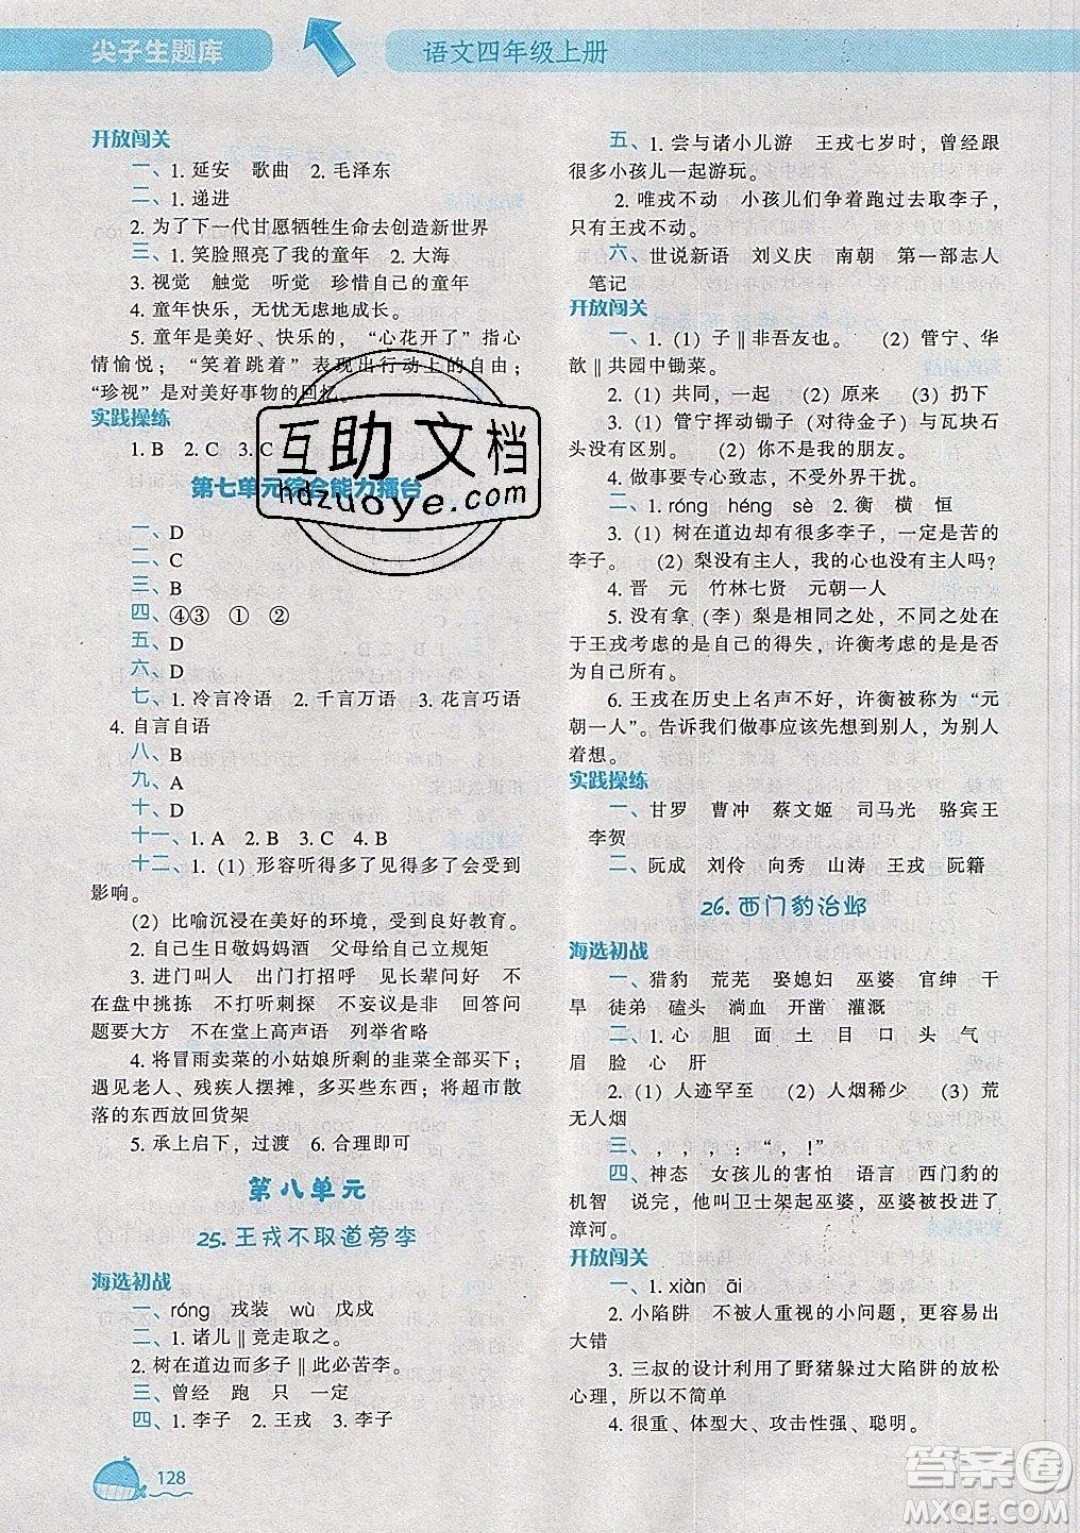 尖子生题库
语文四年级上册
开放闯关
一、1. 延安 歌曲 2. 毛泽东
二、1. 递进
2. 为了下一代甘愿牺牲生命去创造新世界
三、1. 笑脸照亮了我的童年 2. 大海
3. 视觉 触觉 听觉 珍惜自己的童年
4. 童年快乐，无忧无虑地成长。
5. 童年是美好、快乐的，“心花开了”指心
情愉悦；“笑着跳着”表现出行动上的自由；
“珍视”是对美好事物的回忆。
实践操练
1. B 2. C 3. C
第七单元综合能力擂台
一、D
二、D
三、B
四、④③ ① ②
五、D
六、D
七、1. 冷言冷语 2. 千言万语 3. 花言巧语
4. 自言自语
八、B
九、A
十、D
十一、1. A 2. B 3. C 4. B
十二、1. (1) 形容听得多了见得多了会受到
影响。
(2) 比喻沉浸在美好的环境，受到良好教育。
2. 自己生日敬妈妈酒 父母给自己立规矩
3. 进门叫人 出门打招呼 见长辈问好 不
在盘中挑拣 不打听刺探 不妄议是非 回答问
题要大方 不在堂上高声语 列举省略
4. 将冒雨卖菜的小姑娘所剩的韭菜全部买下；
遇见老人、残疾人摆摊，多买些东西；将超市散
落的东西放回货架
5. 承上启下，过渡 6. 合理即可
第八单元
25. 王戎不取道旁李
海选初战
一、róng 戎装 wù 戊戌
二、1. 诸儿‖竞走取之。
2. 树在道边而多子‖此必苦李。
三、曾经 跑 只 一定
四、1. 李子 2. 王戎 3. 李子
128
五、1. 尝与诸小儿游 王戎七岁时，曾经跟
很多小孩儿一起游玩。
2. 唯戎不动 小孩儿们争着跑过去取李子，
只有王戎不动。
六、世说新语 刘义庆 南朝 第一部志人
笔记
开放闯关
一、1. (1) 子‖非吾友也。 (2) 管宁、华
歆‖共园中锄菜。
2. (1) 共同，一起 (2) 原来 (3) 扔下
3. (1) 管宁挥动锄子（对待金子）与瓦块石
头没有区别。 (2) 你不是我的朋友。
4. 做事要专心致志，不受外界干扰。
二、1. róng héng sè 2. 衡 横 恒
3. (1) 树在道边却有很多李子，一定是苦的
李子。 (2) 梨没有主人，我的心也没有主人吗？
4. 晋 元 竹林七贤 元朝一人
5. 没有拿（李）梨是相同之处，不同之处在
于王戎考虑的是自己的得失，许衡考虑的是是否
为自己所有。
6. 王戎在历史上名声不好，许衡被称为“元
朝一人”。告诉我们做事应该先想到别人，为别人
着想。
实践操练
一、甘罗 曹冲 蔡文姬 司马光 骆宾王
李贺
二、阮成 刘伶 向秀 山涛 王戎 阮籍
26. 西门豹治邺
海选初战
一、猎豹 荒芜 娶媳妇 巫婆 官绅 干
旱 徒弟 磕头 淌血 开凿 灌溉
二、1. 心 胆 面 土 目 口 头 气
眉 脸 心 肝
2. (1) 人迹罕至 (2) 人烟稀少 (3) 荒
无人烟
三、，，，：“，！”
四、神态 女孩儿的害怕 语言 西门豹的
机智 说完，他叫卫士架起巫婆，巫婆被投进了
漳河。
开放闯关
一、1. xiàn āi
2. 小陷阱 不被人重视的小问题，更容易出
大错
3. 三叔的设计利用了野猪躲过大陷阱的放松
心理，所以不简单
4. 很重、体型大、攻击性强、聪明。
互助文档
hdzuoye.com
答案圈
MXQE.COM